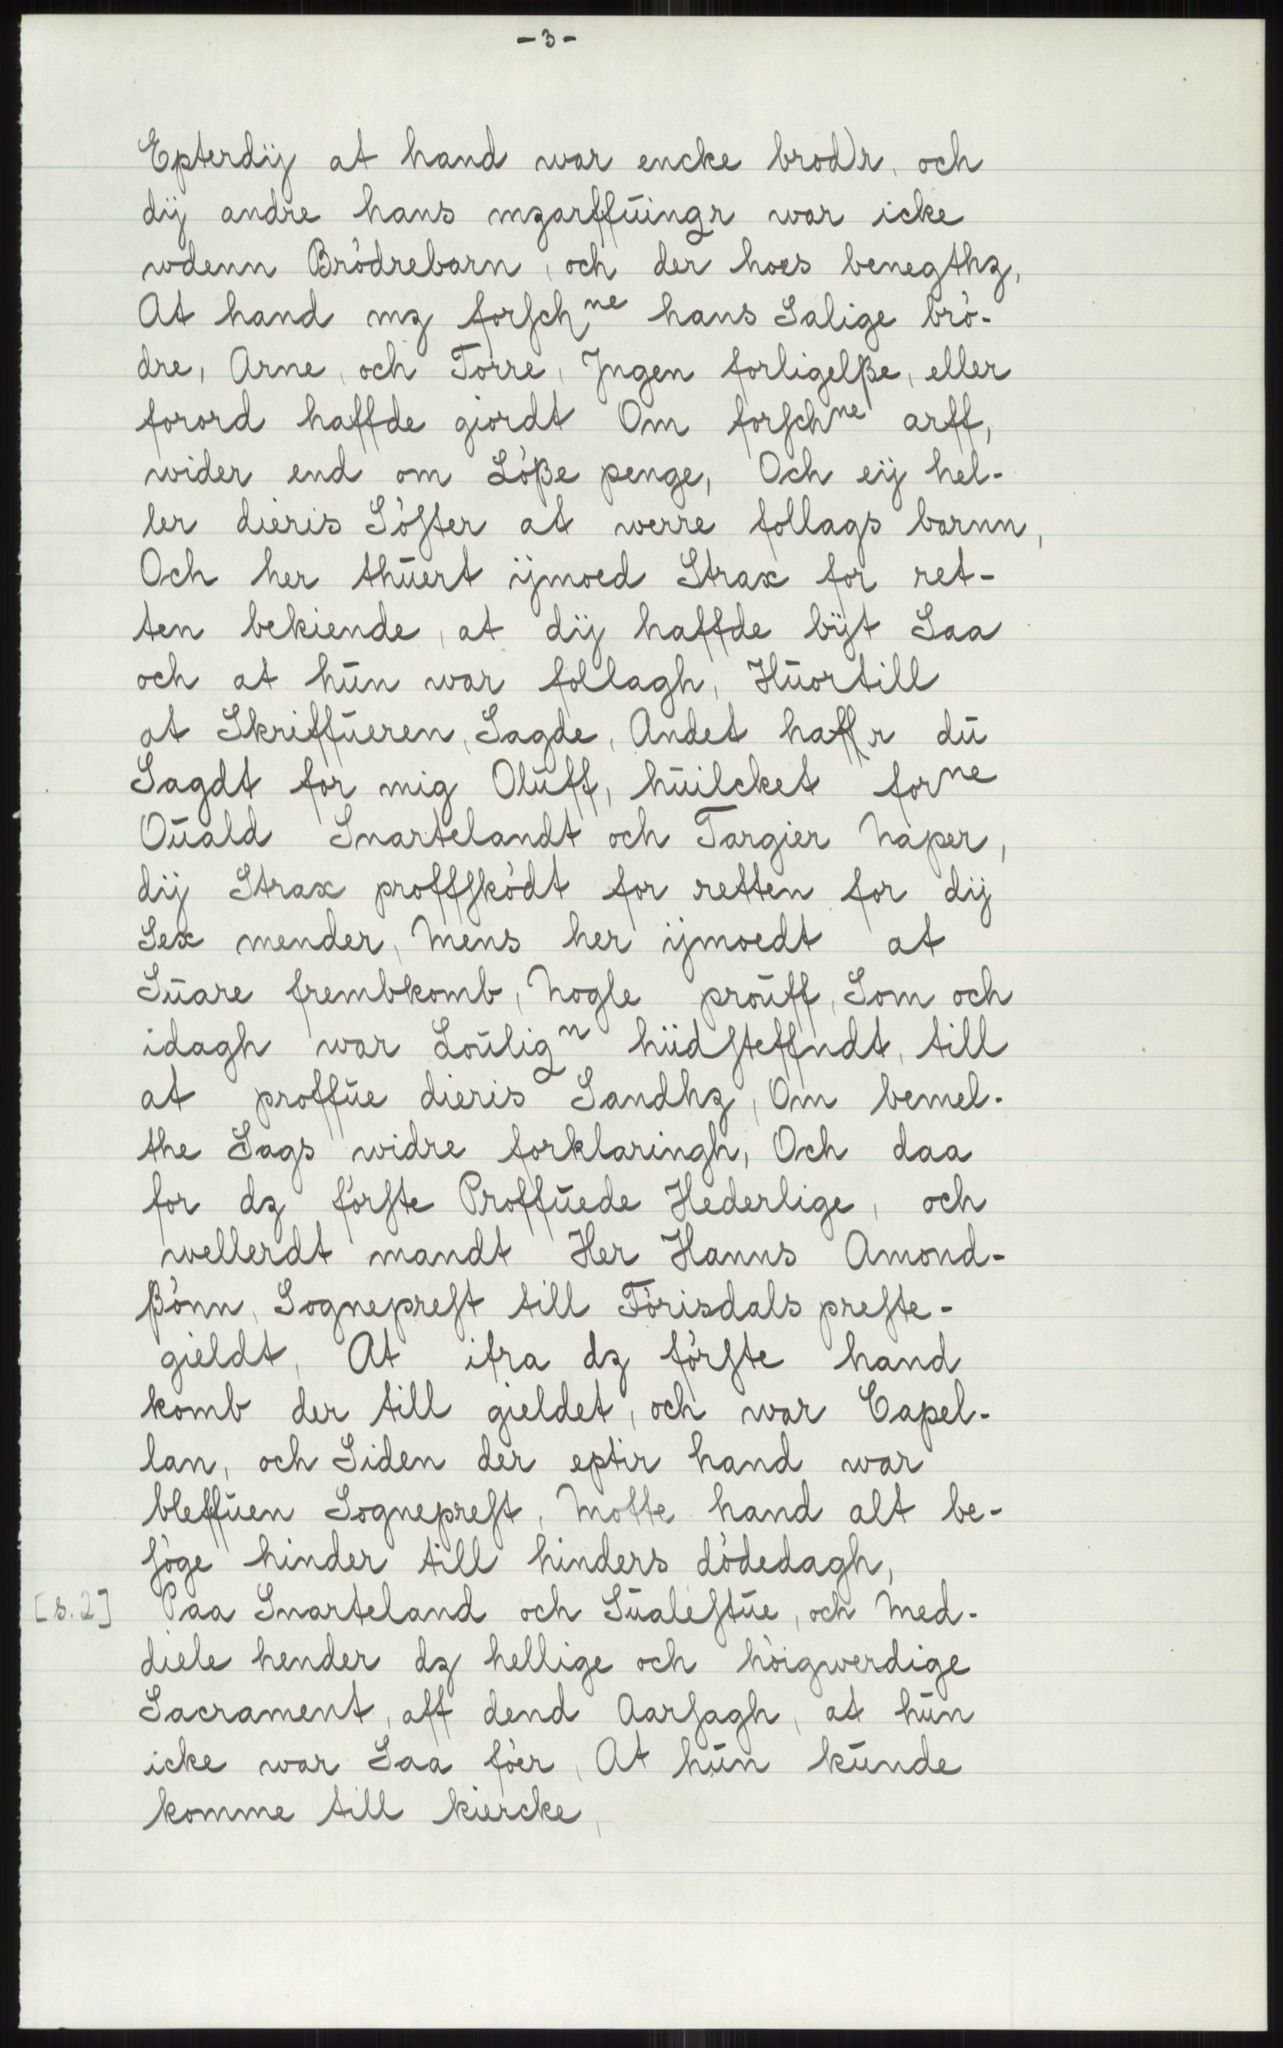 - 3 -
Epterdij at hand war encke brodr, och
dij andre hans mzarffŭingr war icke
wdenn Brödrebarn, och der hoes benegthz,
At hand mz forſchⁿᵉ hans Salige brö-
dre, Arne, och Torre, Jngen forligelße, eller
forord haffde giordt Om forſchⁿᵉ arff,
wider end om Löße penge, Och eij hel-
ler dieris Söſter at werre follags barnn,
Och her thŭert ijmoed Strax for ret-
ten bekiende, at dij haffde bÿt Saa
och at hŭn war follagh, Hŭortill
at Skriffŭeren, Sagde, Andet haffr dŭ
Sagdt for mig Olŭff, hŭilcket forⁿᵉ
Oŭald Snartelandt och Targier Naper,
dij Strax proffſködt for retten for dij
Sex mender, Mens her ijmoedt at
Sŭare frembkomb, Nogle proŭff, Som och
idagh war Loŭligⁿ hiidſteffndt, till
at proffŭe dieris Sandhz, Om bemel-
the Sags widre forklaringh, Och daa
for dz förſte Proffŭede Hederlige, och
wellerdt mandt Her Hanns Amond-
ßönn, Sognepreſt till Förisdals preſte-
gieldt, At ifra dz förſte hand
komb der till gieldet, och war Capel-
lan, och Siden der eptir hand war
bleffŭen Sognepreſt, Motte hand alt be-
ſöge hinder till hinders dödedagh,
[s. 2] Paa Snarteland och Sŭaleſtŭe, och Med-
diele hender dz hellige och höigwerdige
Sacrament, aff dend Aarſagh, at hŭn
icke war Saa föer, At hŭn kŭnde
komme till kiercke,